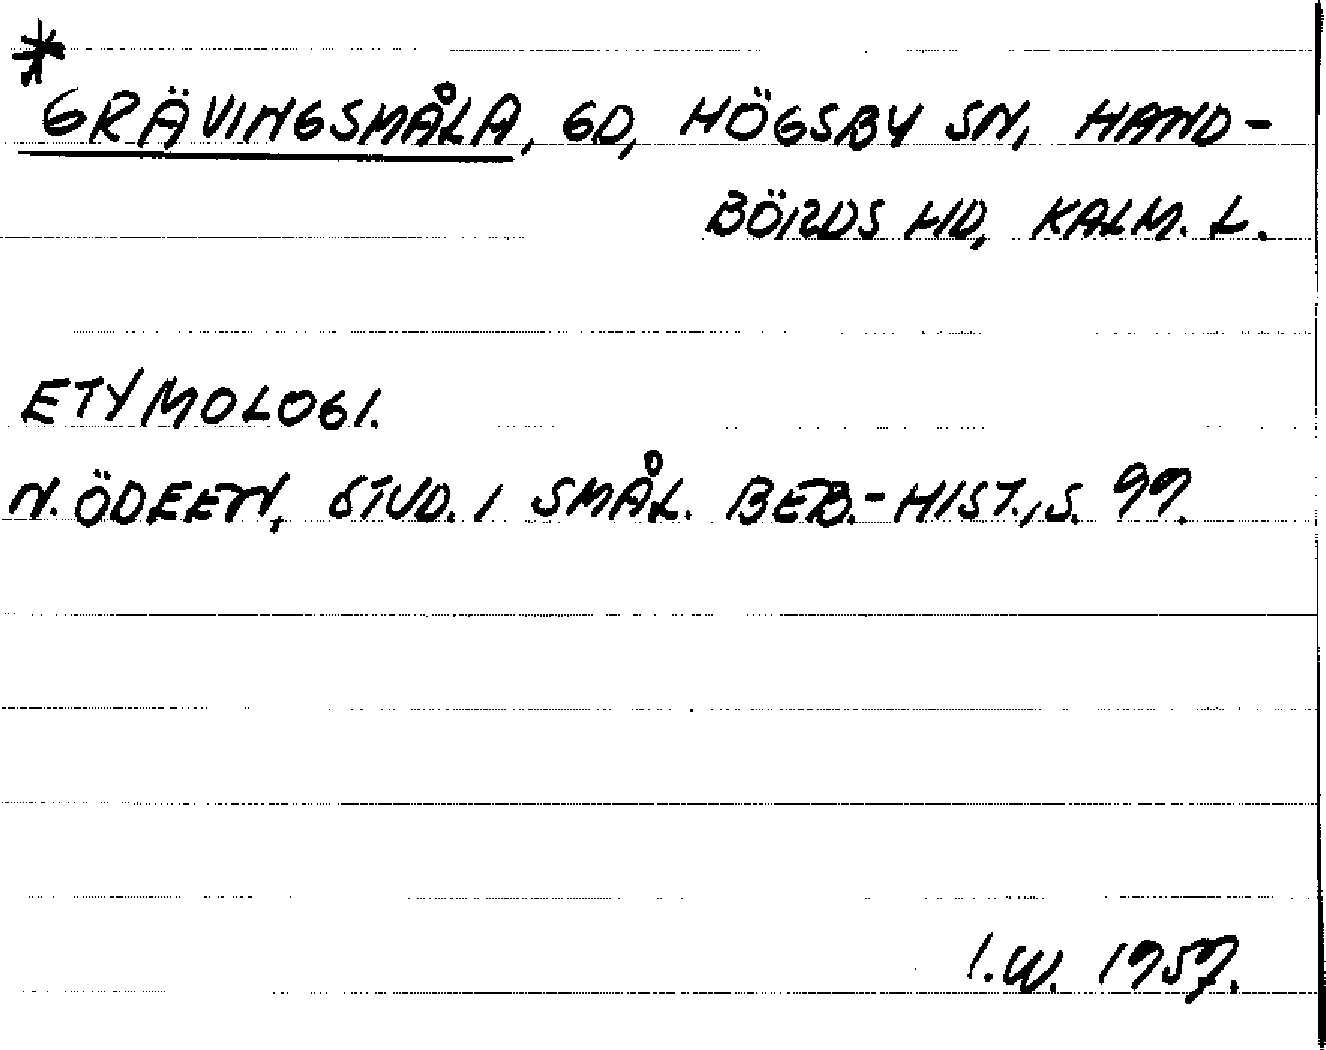 *
GRÄVINGSMÅLA, GD, HÖGSBY SN, HAND-
BÖRDS HD, KALM. L.
ETYMOLOGI.
N. ÖDEEN, STUD. I SMÅL. BEB.-HIST., S. 99.
I.W. 1957.